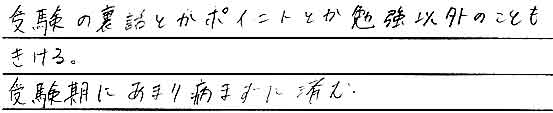 受験の裏話とかポイントとか勉強以外のことも
きける。
受験期にあまり病まずに済む.